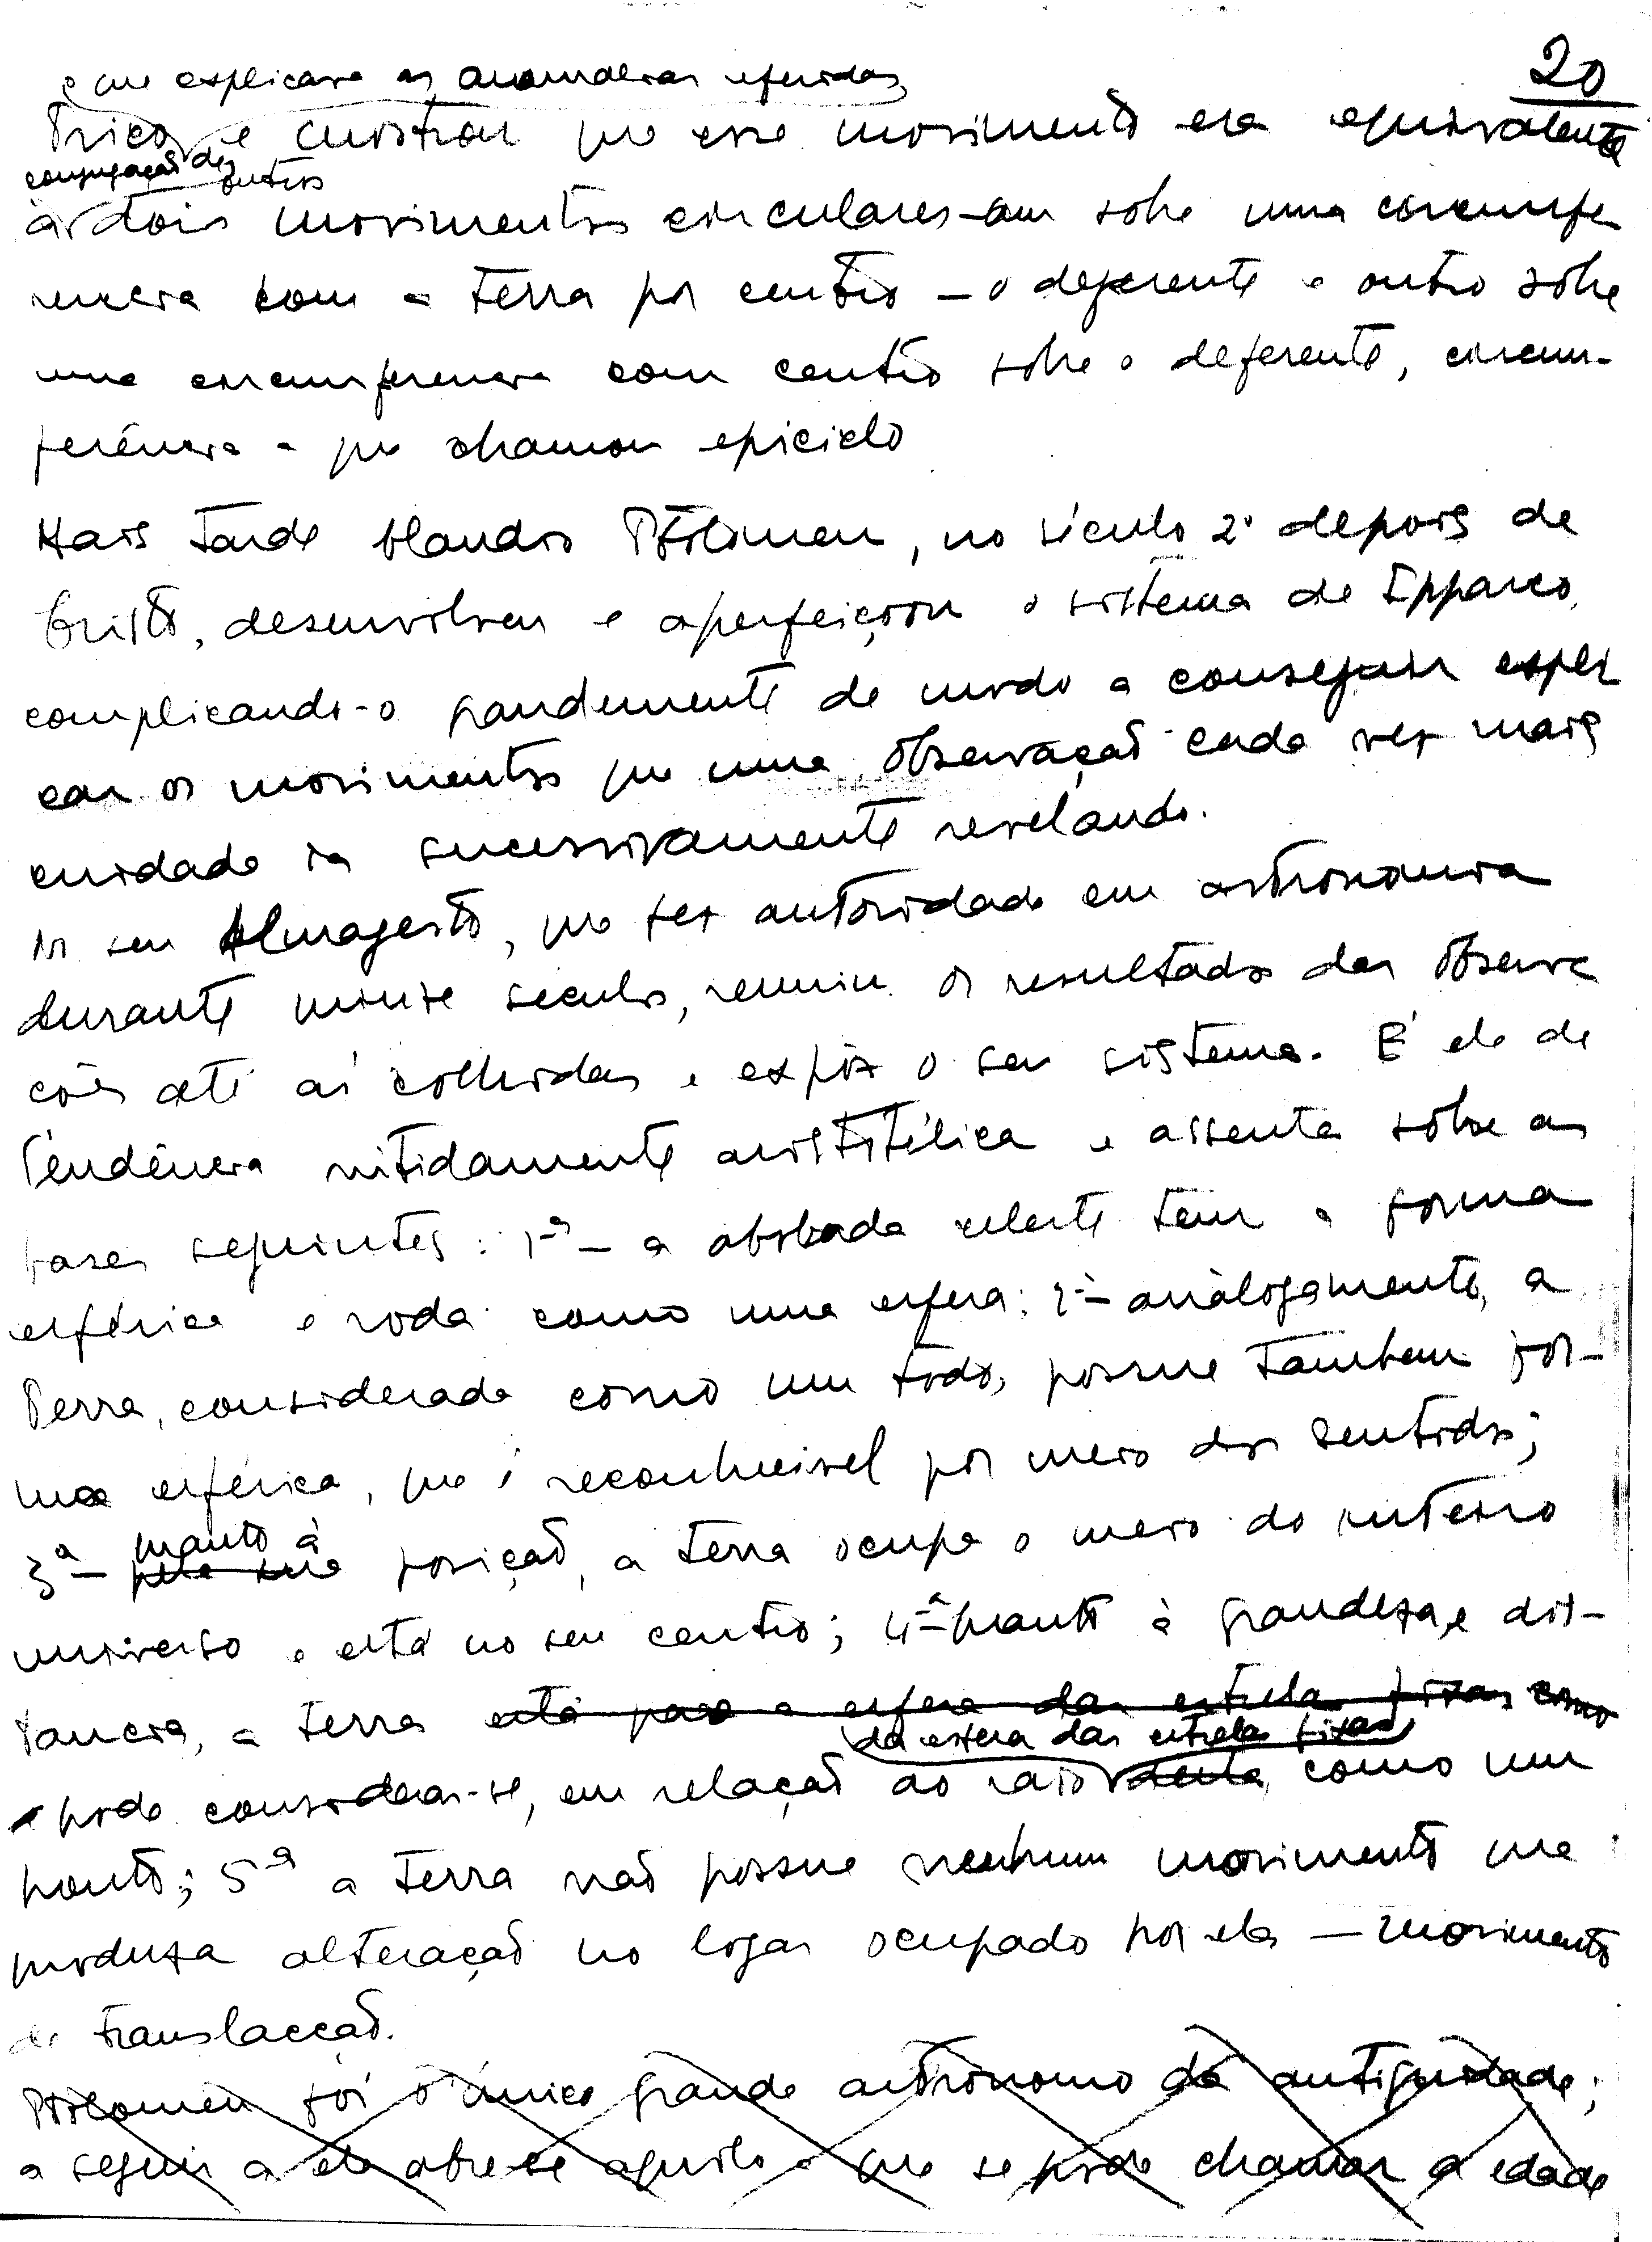 20
e que explicava as anomalias referidas,
trico e mostrou que esse movimento era equivalente
conjugação de outros
à dois movimentos circulares - um sobre uma circumfe
rencia com a terra por centro - o deferente e outro sobre
uma circumferencia com centro sobre o deferente, circum-
ferência a que chamou epiciclo
Mais tarde Claudio Ptolomeu, no século 2º depois de
Cristo, desenvolveu e aperfeiçoou o sistema de Ipparco,
complicando-o grandemente de modo a conseguir expli
car os movimentos que uma observação cada vez mais
cuidada ia sucessivamente revelando.
No seu Almagesto, que fez autoridade em astronomia
durante quinze séculos, reuniu os resultados das observa
cões até aí colhidas e expôz o seu sistema. É ele de
tendência nitidamente aristotélica e assenta sôbre as
bases seguintes: 1ª - a abobada celeste tem a forma
esférica e roda como uma esfera; 2ª - anàlogamente, a
Terra, considerada como um todo, possue tambem for-
ma esférica, que é reconhecivel por meio dos sentidos;
quanto à
3ª - pela sua posição, a terra ocupa o meio do inteiro
universo e está no seu centro; 4ª - quanto à grandeza e dis-
tancia, a terra está para a esfera das estrelas fixas como
da esfera das estrelas fixas
pode considerar-se, em relação ao raio desta, como um
ponto; 5ª a terra não possue nenhum movimento que
produza alteração no logar ocupado por ela - movimento
de translacção.
Ptolomeu foi o único grande astrónomo da antiguidade;
a seguir a ele abre-se aquilo a que se pode chamar a edade